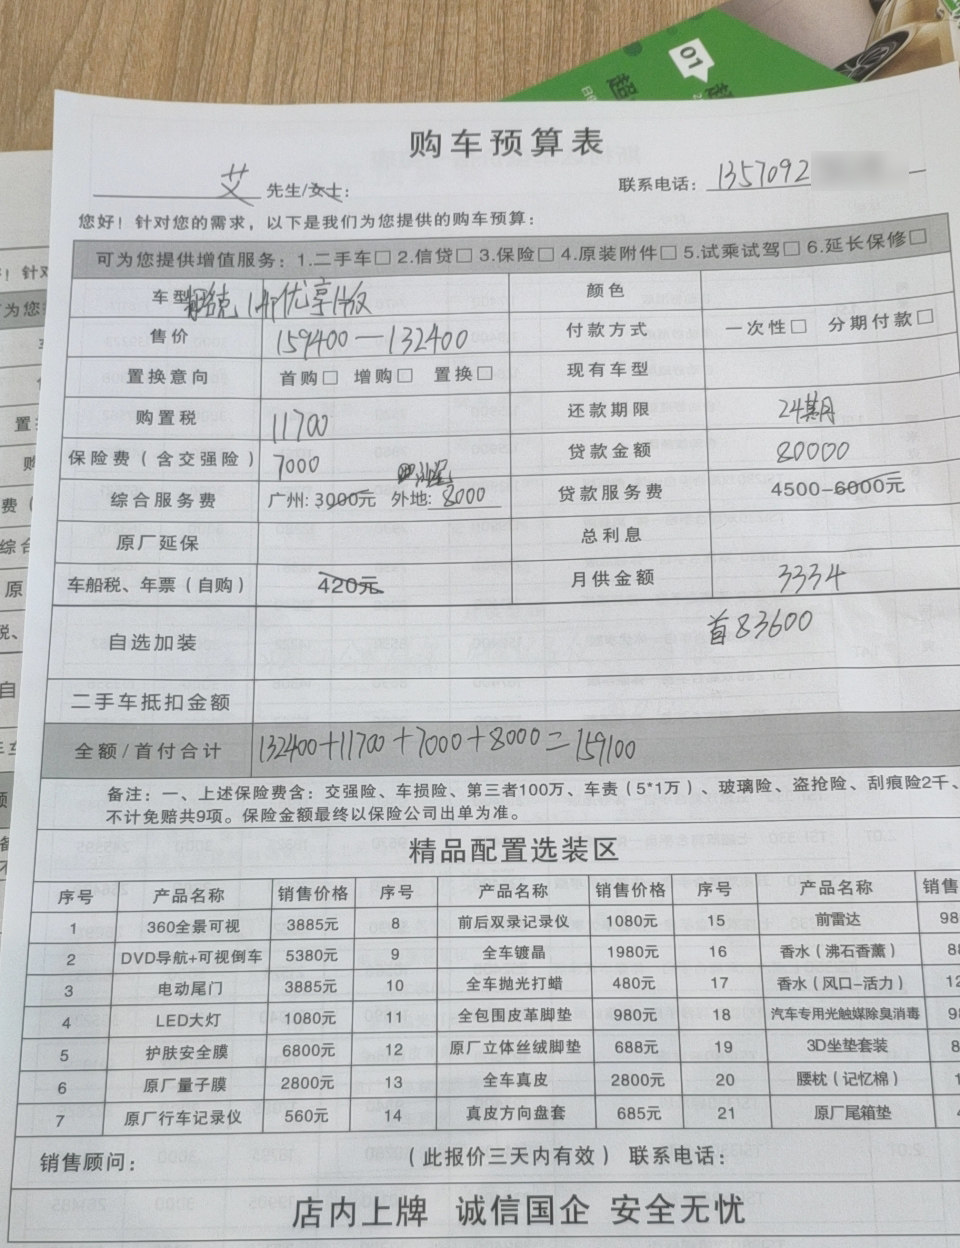 01
购车预算表
艾 先生/女士： 联系电话： 1357092
您好！针对您的需求，以下是我们为您提供的购车预算：
可为您提供增值服务：1.二手车□ 2.信贷□ 3.保险□ 4.原装附件□ 5.试乘试驾□ 6.延长保修□
车型 优享 颜色
售价 159400—132400 付款方式 一次性□ 分期付款□
置换意向 首购□ 增购□ 置换□ 现有车型
购置税 11700 还款期限 24期
保险费（含交强险） 7000 贷款金额 80000
综合服务费 广州: 3000元 外地: 8000 贷款服务费 4500-6000元
原厂延保 总利息
车船税、年票（自购） 420元 月供金额 3334
自选加装 首83600
二手车抵扣金额
全额/首付合计 132400+11700+7000+8000=159100
备注：一、上述保险费含：交强险、车损险、第三者100万、车责（5*1万）、玻璃险、盗抢险、刮痕险2千、
不计免赔共9项。保险金额最终以保险公司出单为准。
精品配置选装区
序号 产品名称 销售价格 序号 产品名称 销售价格 序号 产品名称 销售
1 360全景可视 3885元 8 前后双录记录仪 1080元 15 前雷达 98
2 DVD导航+可视倒车 5380元 9 全车镀晶 1980元 16 香水（沸石香薰） 88
3 电动尾门 3885元 10 全车抛光打蜡 480元 17 香水（风口-活力） 12
4 LED大灯 1080元 11 全包围皮革脚垫 980元 18 汽车专用光触媒除臭消毒 98
5 护肤安全膜 6800元 12 原厂立体丝绒脚垫 688元 19 3D坐垫套装 8
6 原厂量子膜 2800元 13 全车真皮 2800元 20 腰枕（记忆棉） 1
7 原厂行车记录仪 560元 14 真皮方向盘套 685元 21 原厂尾箱垫 4
销售顾问： （此报价三天内有效） 联系电话：
店内上牌 诚信国企 安全无忧